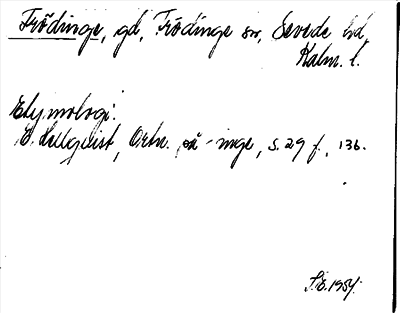 Frödinge, gd, Frödinge sn, Sevede hd,
Kalm. l.
Etymologi:
E. Hellquist, Ortn. på -inge, s. 29 f., 136.
S.E. 1954.